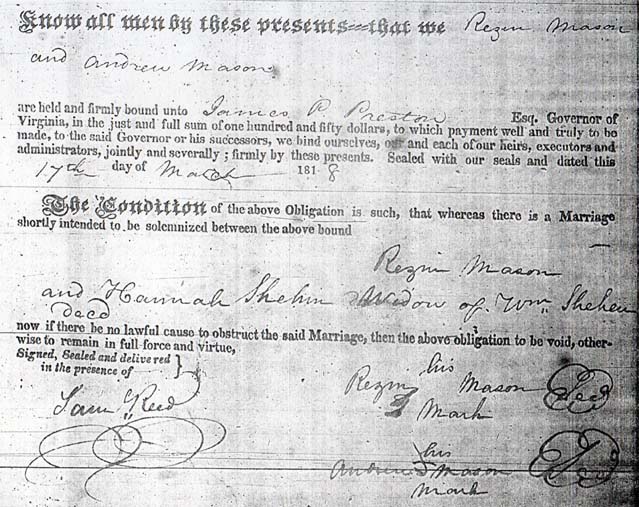 Know all men by these presents---that we Rezin Mason
and Andrew Mason
are held and firmly bound unto James P. Preston Esq. Governor of
Virginia, in the just and full sum of one hundred and fifty dollars, to which payment well and truly to be
made, to the said Governor or his successors, we bind ourselves, our and each of our heirs, executors and
administrators, jointly and severally ; firmly by these presents. Sealed with our seals and dated this
17th day of March 1818
The Condition of the above Obligation is such, that whereas there is a Marriage
shortly intended to be solemnized between the above bound
Rezin Mason
and Hannah Shehen Widow of Wm Shehen
decd
now if there be no lawful cause to obstruct the said Marriage, then the above obligation to be void, other-
wise to remain in full force and virtue,
Signed, Sealed and delivered
in the presence of
his
Rezin Mason
Mark
Reed
his
Andrew Mason
Mark